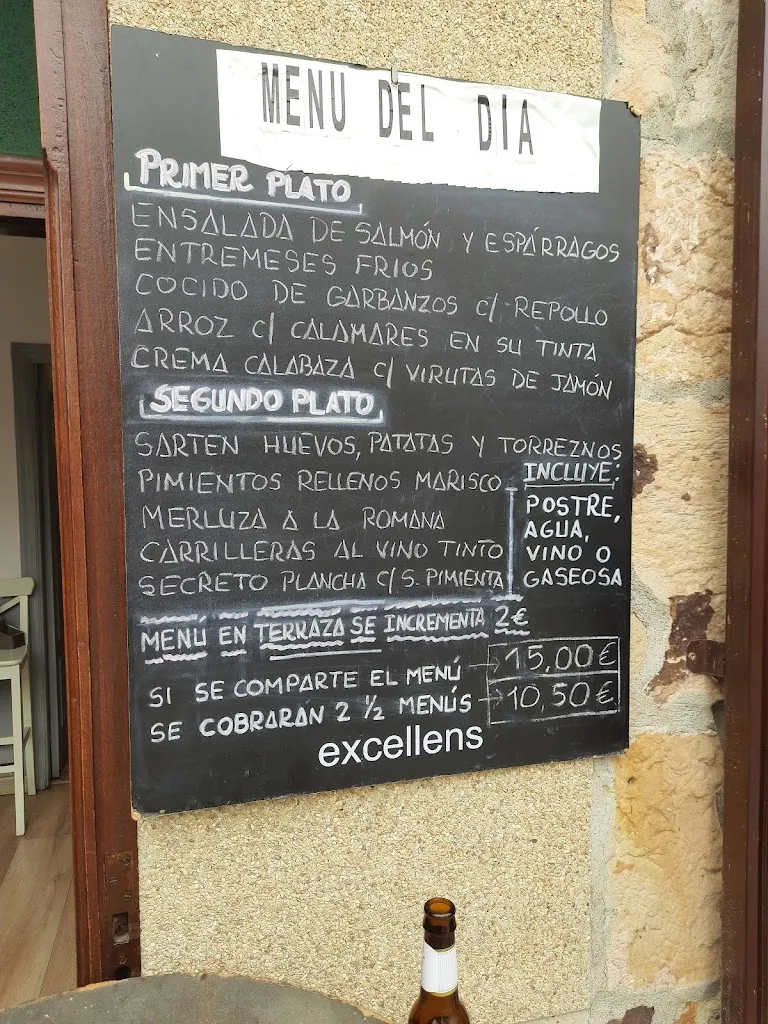 MENU DEL DIA
PRIMER PLATO
ENSALADA DE SALMÓN Y ESPÁRRAGOS
ENTREMESES FRIOS
COCIDO DE GARBANZOS c/ REPOLLO
ARROZ c/ CALAMARES EN SU TINTA
CREMA CALABAZA c/ VIRUTAS DE JAMÓN
SEGUNDO PLATO
SARTEN HUEVOS, PATATAS Y TORREZNOS
PIMIENTOS RELLENOS MARISCO
MERLUZA A LA ROMANA
CARRILLERAS AL VINO TINTO
SECRETO PLANCHA c/ S. PIMIENTA
INCLUYE:
POSTRE,
AGUA,
VINO O
GASEOSA
MENÚ EN TERRAZA SE INCREMENTA 2€
SI SE COMPARTE EL MENÚ → 15,00€
SE COBRARAN 2 ½ MENÚS → 10,50€
excellens